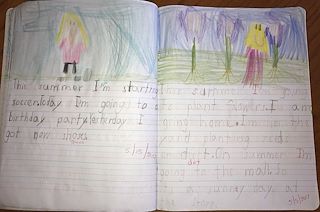 This summer I'm starting
soccer. Today I'm going to a
birthday party. Yesterday I
got new shoes.
summer I'm going
plant flowers. I am
going home. I'm in the
yard planting seeds
in dirt. On summer I'm
going to the mall. So
a sunny day at
the